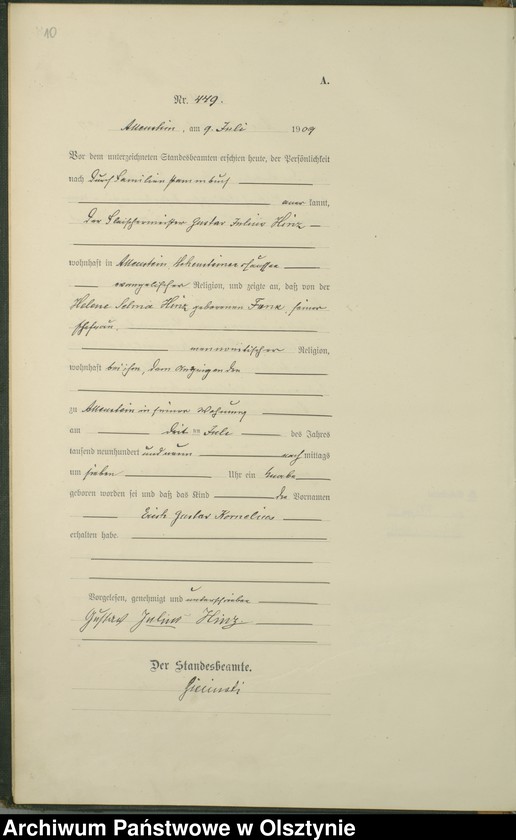 10
A.
Nr. 449.
Allenstein, am 9. Juli 1909
Vor dem unterzeichneten Standesbeamten erschien heute, der Persönlichkeit
nach durch Familienstammbuch
aner kannt,
der Fleischermeister Gustav Julius Hinz
wohnhaft in Allenstein, Hohensteinerchaussee
evangelischer Religion, und zeigte an, daß von der
Helene Selma Hinz geborenen Funk, seiner
Ehefrau,
mennonitischer Religion,
wohnhaft bei ihm, dem Anzeigenden
zu Allenstein in seiner Wohnung
am des Jahres
tausend neunhundert und neun nach mittags
um sieben Uhr ein Knabe
geboren worden sei und daß das Kind die Vornamen
Erich Gustav Kornelius
erhalten habe.
Vorgelesen, genehmigt und unterschrieben
Gustav Julius Hinz
Der Standesbeamte.
Archiwum Państwowe w Olsztynie